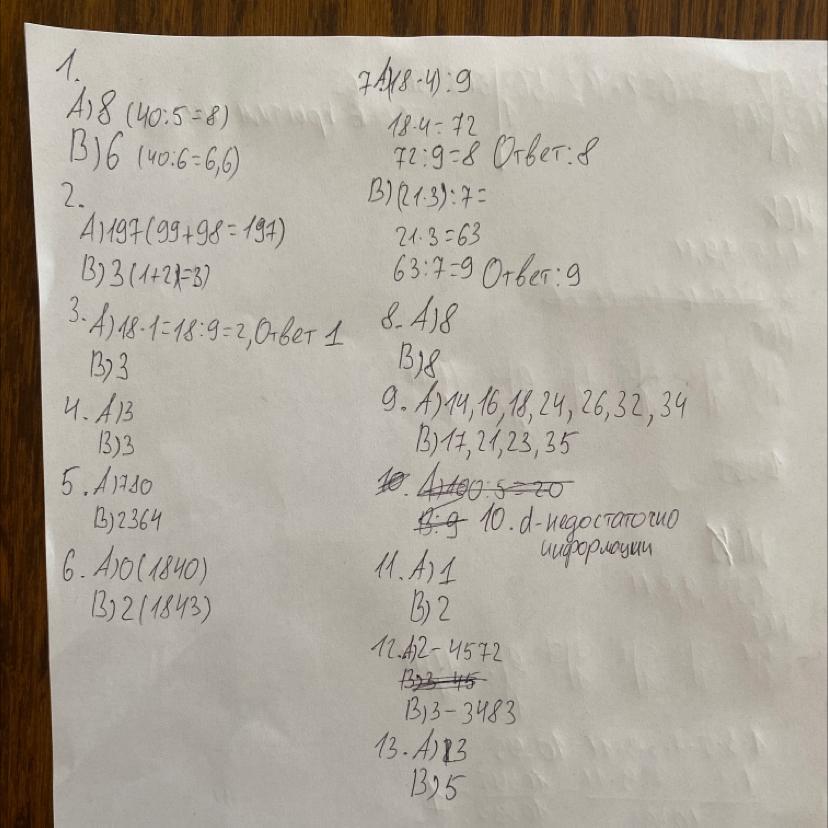 1.
А) 8 (40:5=8)
В) 6 (40:6=6,6)
2.
А) 197 (99+98=197)
В) 3 (1+2)=3)
3. А) 18·1=18:9=2, Ответ 1
В) 3
4. А) 3
В) 3
5. А) 780
В) 2364
6. А) 0 (1840)
В) 2 (1843)
7 А) (18·4):9
18·4=72
72:9=8 Ответ: 8
В) (21·3):7=
21·3=63
63:7=9 Ответ: 9
8. А) 8
В) 8
9. А) 14, 16, 18, 24, 26, 32, 34
В) 17, 21, 23, 35
10. А) 100:5=20
В: 9 10. d-недостаточно
информации
11. А) 1
В) 2
12. А) 2 - 4572
В) 3 - 45
В) 3 - 3483
13. А) 3
В) 5